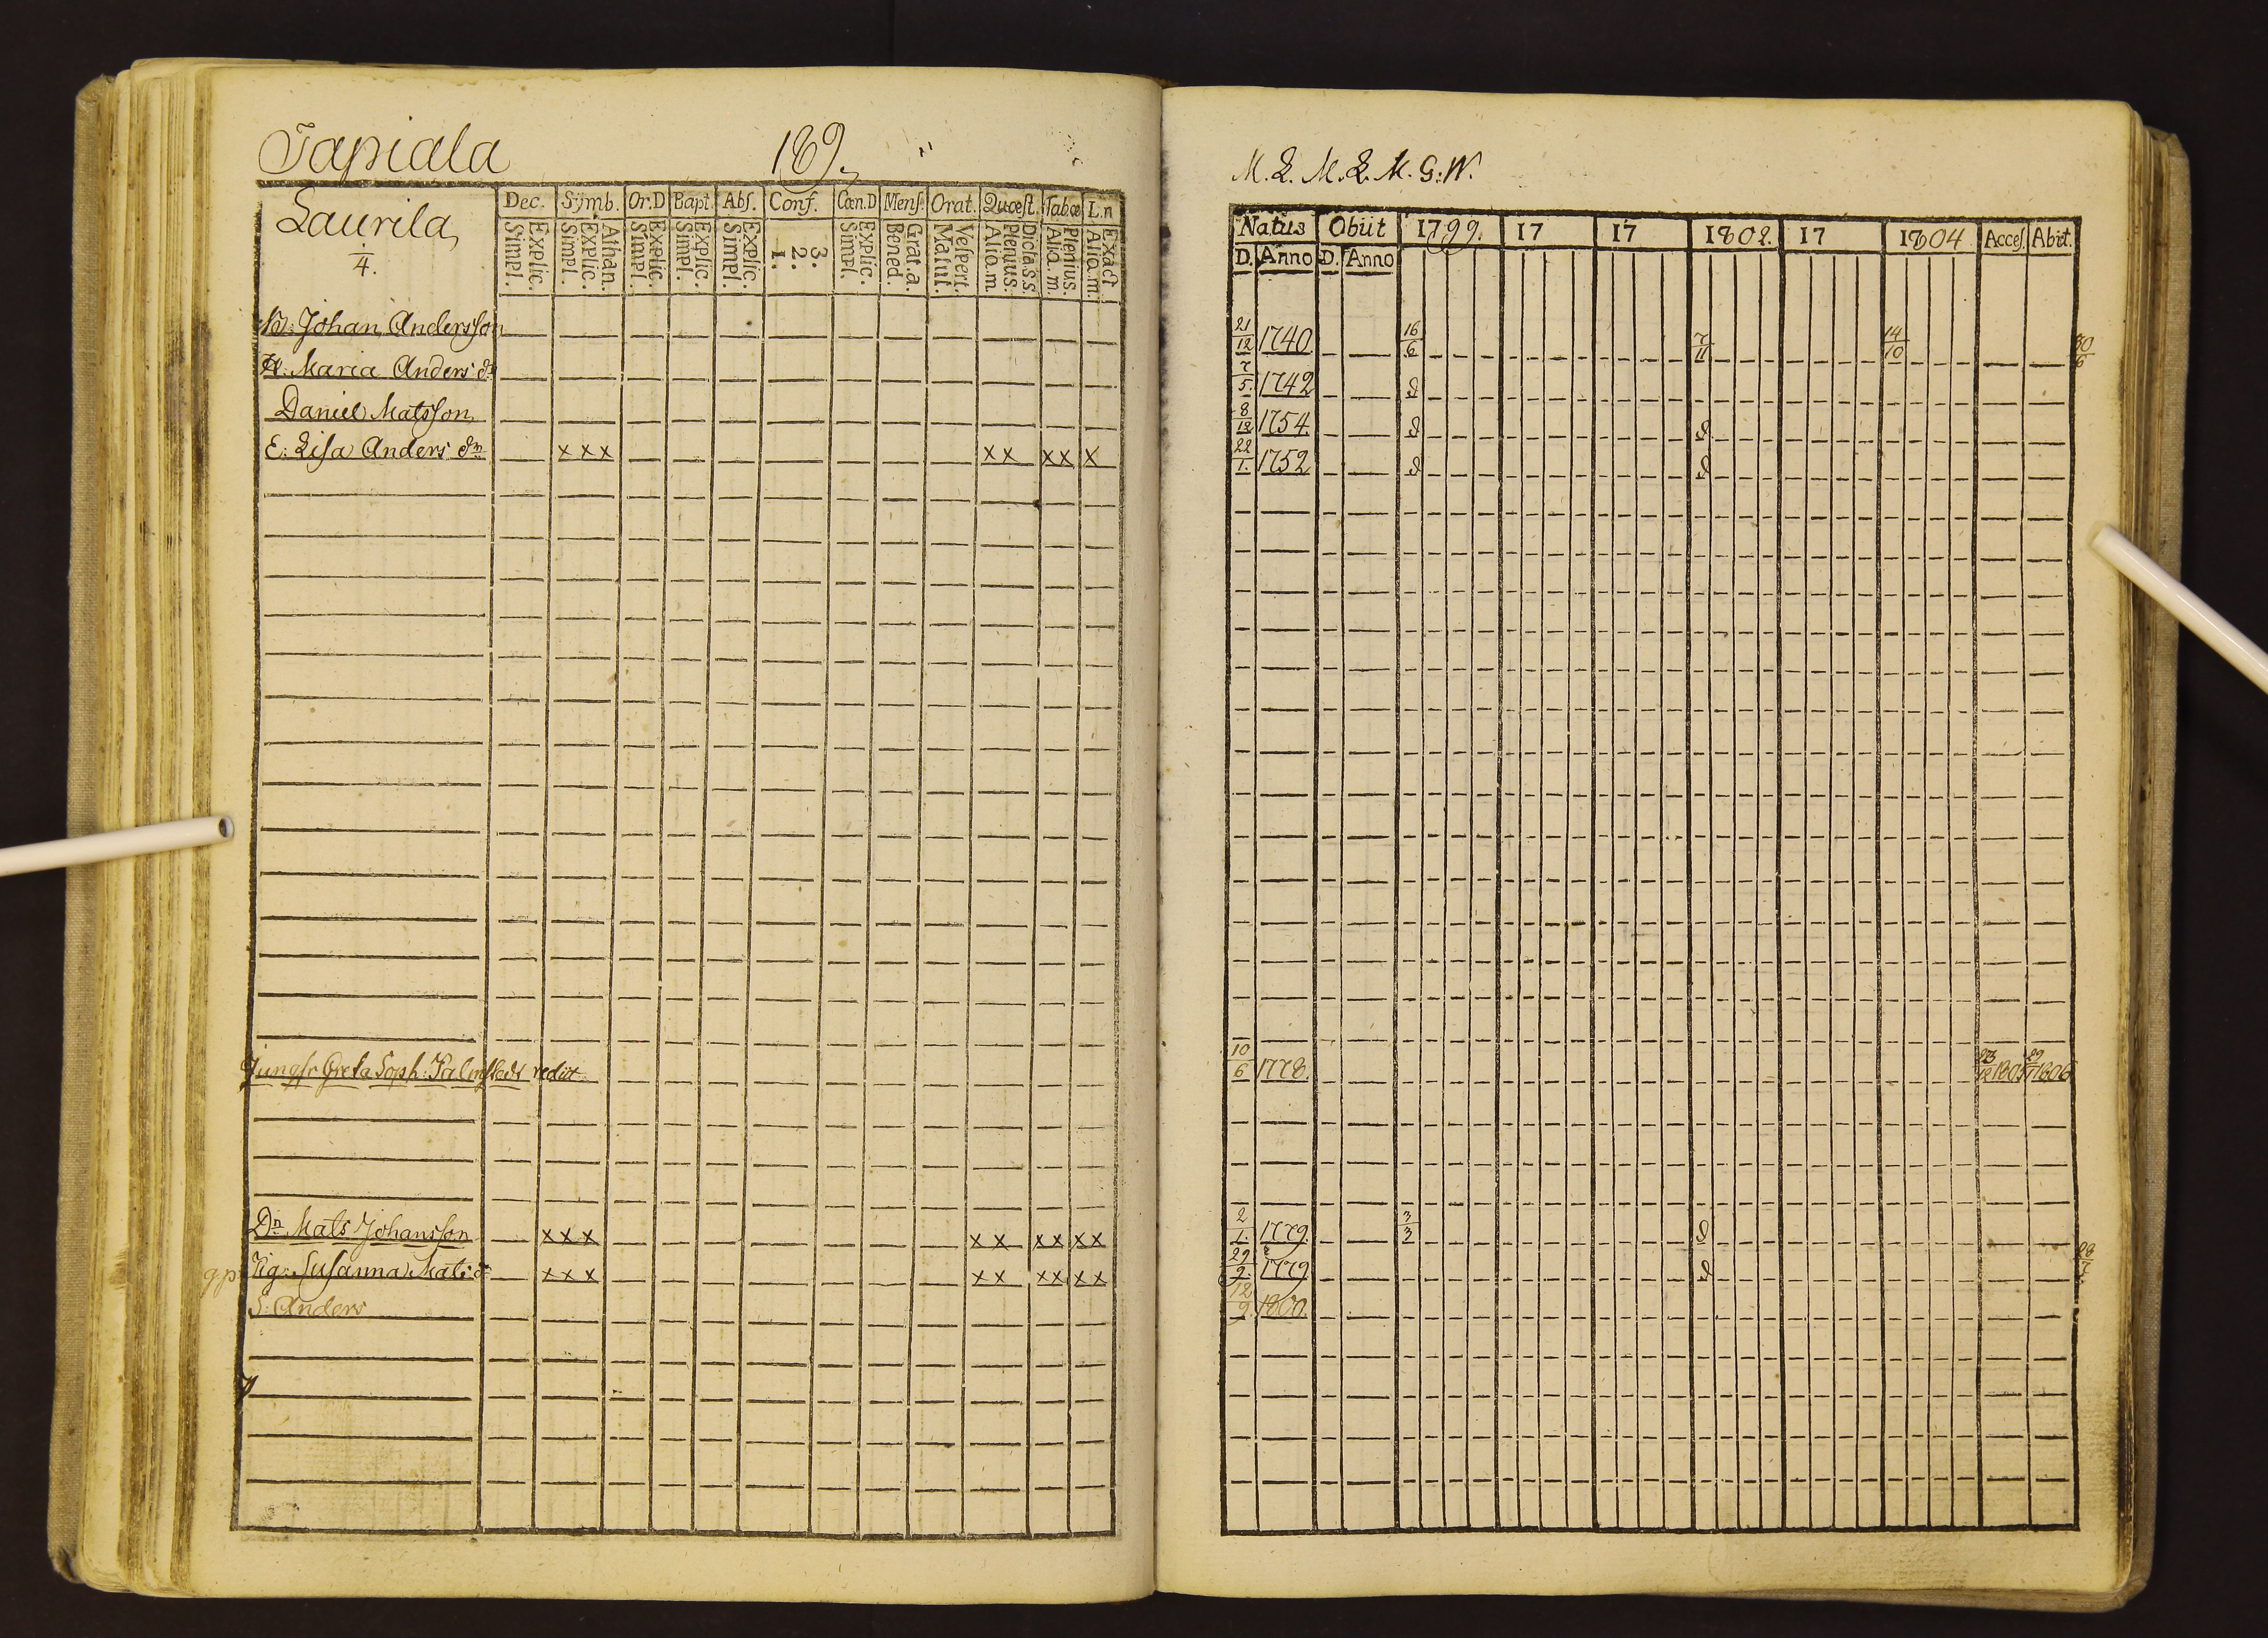 Tapiala 189.
Laurila
1/4.
Dec. Symb. Or.D Bapt. Abs. Conf. Cœn.D Mens. Orat. Quæst. Tabæ L.n
Simpl. Explic. Simpl. Explic. Athan. Simpl. Explic. Simpl. Explic. Simpl. Explic. 1. 2. 3. Simpl. Explic. Bened. Grat.a. Matut. Vespert. Alio.m Plenius. Dicta.s.s. Alio.m. Plenius. Alio.m. Exact
Johan Andersson
H: Maria Anders dr
Daniel Matsson
E: Lisa Anders dr x x x x x x x x
Jungfr Greta Soph: Palmstedt rediit
Dn Mats Johansson x x x x x x x x x
Pig: Susanna Mats dr x x x x x x x x x
S: Anders
M. L. M. L. M. G. W.
Natus Obiit 1799. 17 17 1802. 17 1804 Acces. Abit.
D. Anno D. Anno
21/12 1740 16/6 7/11 14/10 30/6
7/5 1742
8/12 1754
22/1. 1752
10/6 1778. 1806
2/1. 1779. 3/3
29/9. 1779
12/9. 1800.